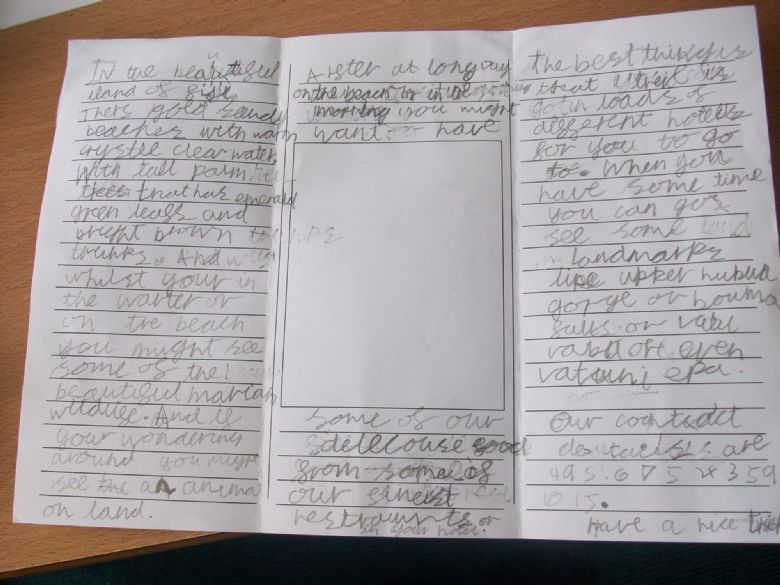 IN the beautiful
iland of fiji
Thers gold sandy
beaches with warm
crystle clear water
with tall palm trees
trees that has emerald
green leafs and
bright brown
trunks. And
whilst your in
the warter or
on the beach
you might see
some of the
beautiful marcan
wildlife. And if
your wondering
around you might
see the an animal
on land.
Arfter a long day
on the beach or in the
morning you might
want or have
some of our
delecouse food
from some of
our finest
restraunts or
in your hotel.
the best thing is
that
gotin loads of
different hotells
for you to go
to. When you
have some time
you can go
see some
landmarks
like upper nubua
gorge or bouma
falls or
or even
vatuni epa.
Our contact
detailes are
995.675 x 359
015.
Have a nice trip